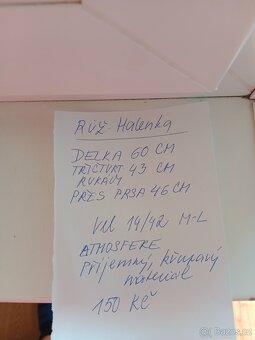 RŮŽ. Halenka
DELKA 60 CM
TŘIČTVRT 43 CM
RUKÁVY
PŘES PRSA 46 CM
Vel 14/42 M-L
ATMOSFERE
Příjemný, křupavý
materiál
150 Kč